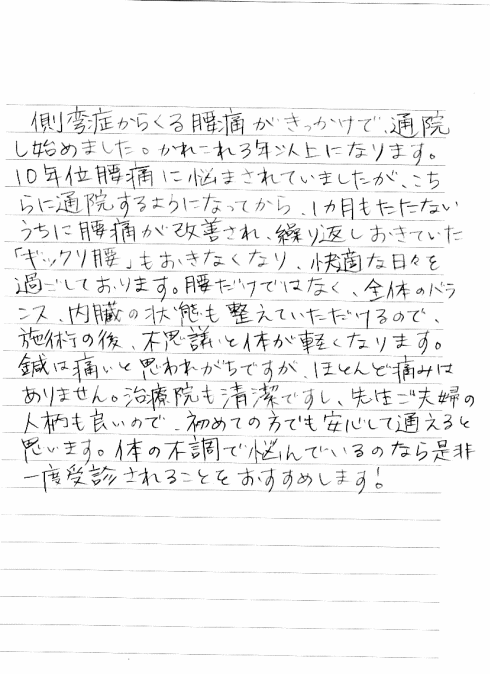 側弯症からくる腰痛がきっかけで、通院
し始めました。かれこれ3年以上になります。
10年位腰痛に悩まされていましたが、こち
らに通院するようになってから、1カ月もたたない
うちに腰痛が改善され、繰り返しおきていた
「ギックリ腰」もおきなくなり、快適な日々を
過ごしております。腰だけではなく、全体のバラ
ンス、内臓の状態も整えていただけるので、
施術の後、不思議と体が軽くなります。
鍼は痛いと思われがちですが、ほとんど痛みは
ありません。治療院も清潔ですし、先生ご夫婦の
人柄も良いので、初めての方でも安心して通えると
思います。体の不調で悩んでいるのなら是非
一度受診されることをおすすめします!